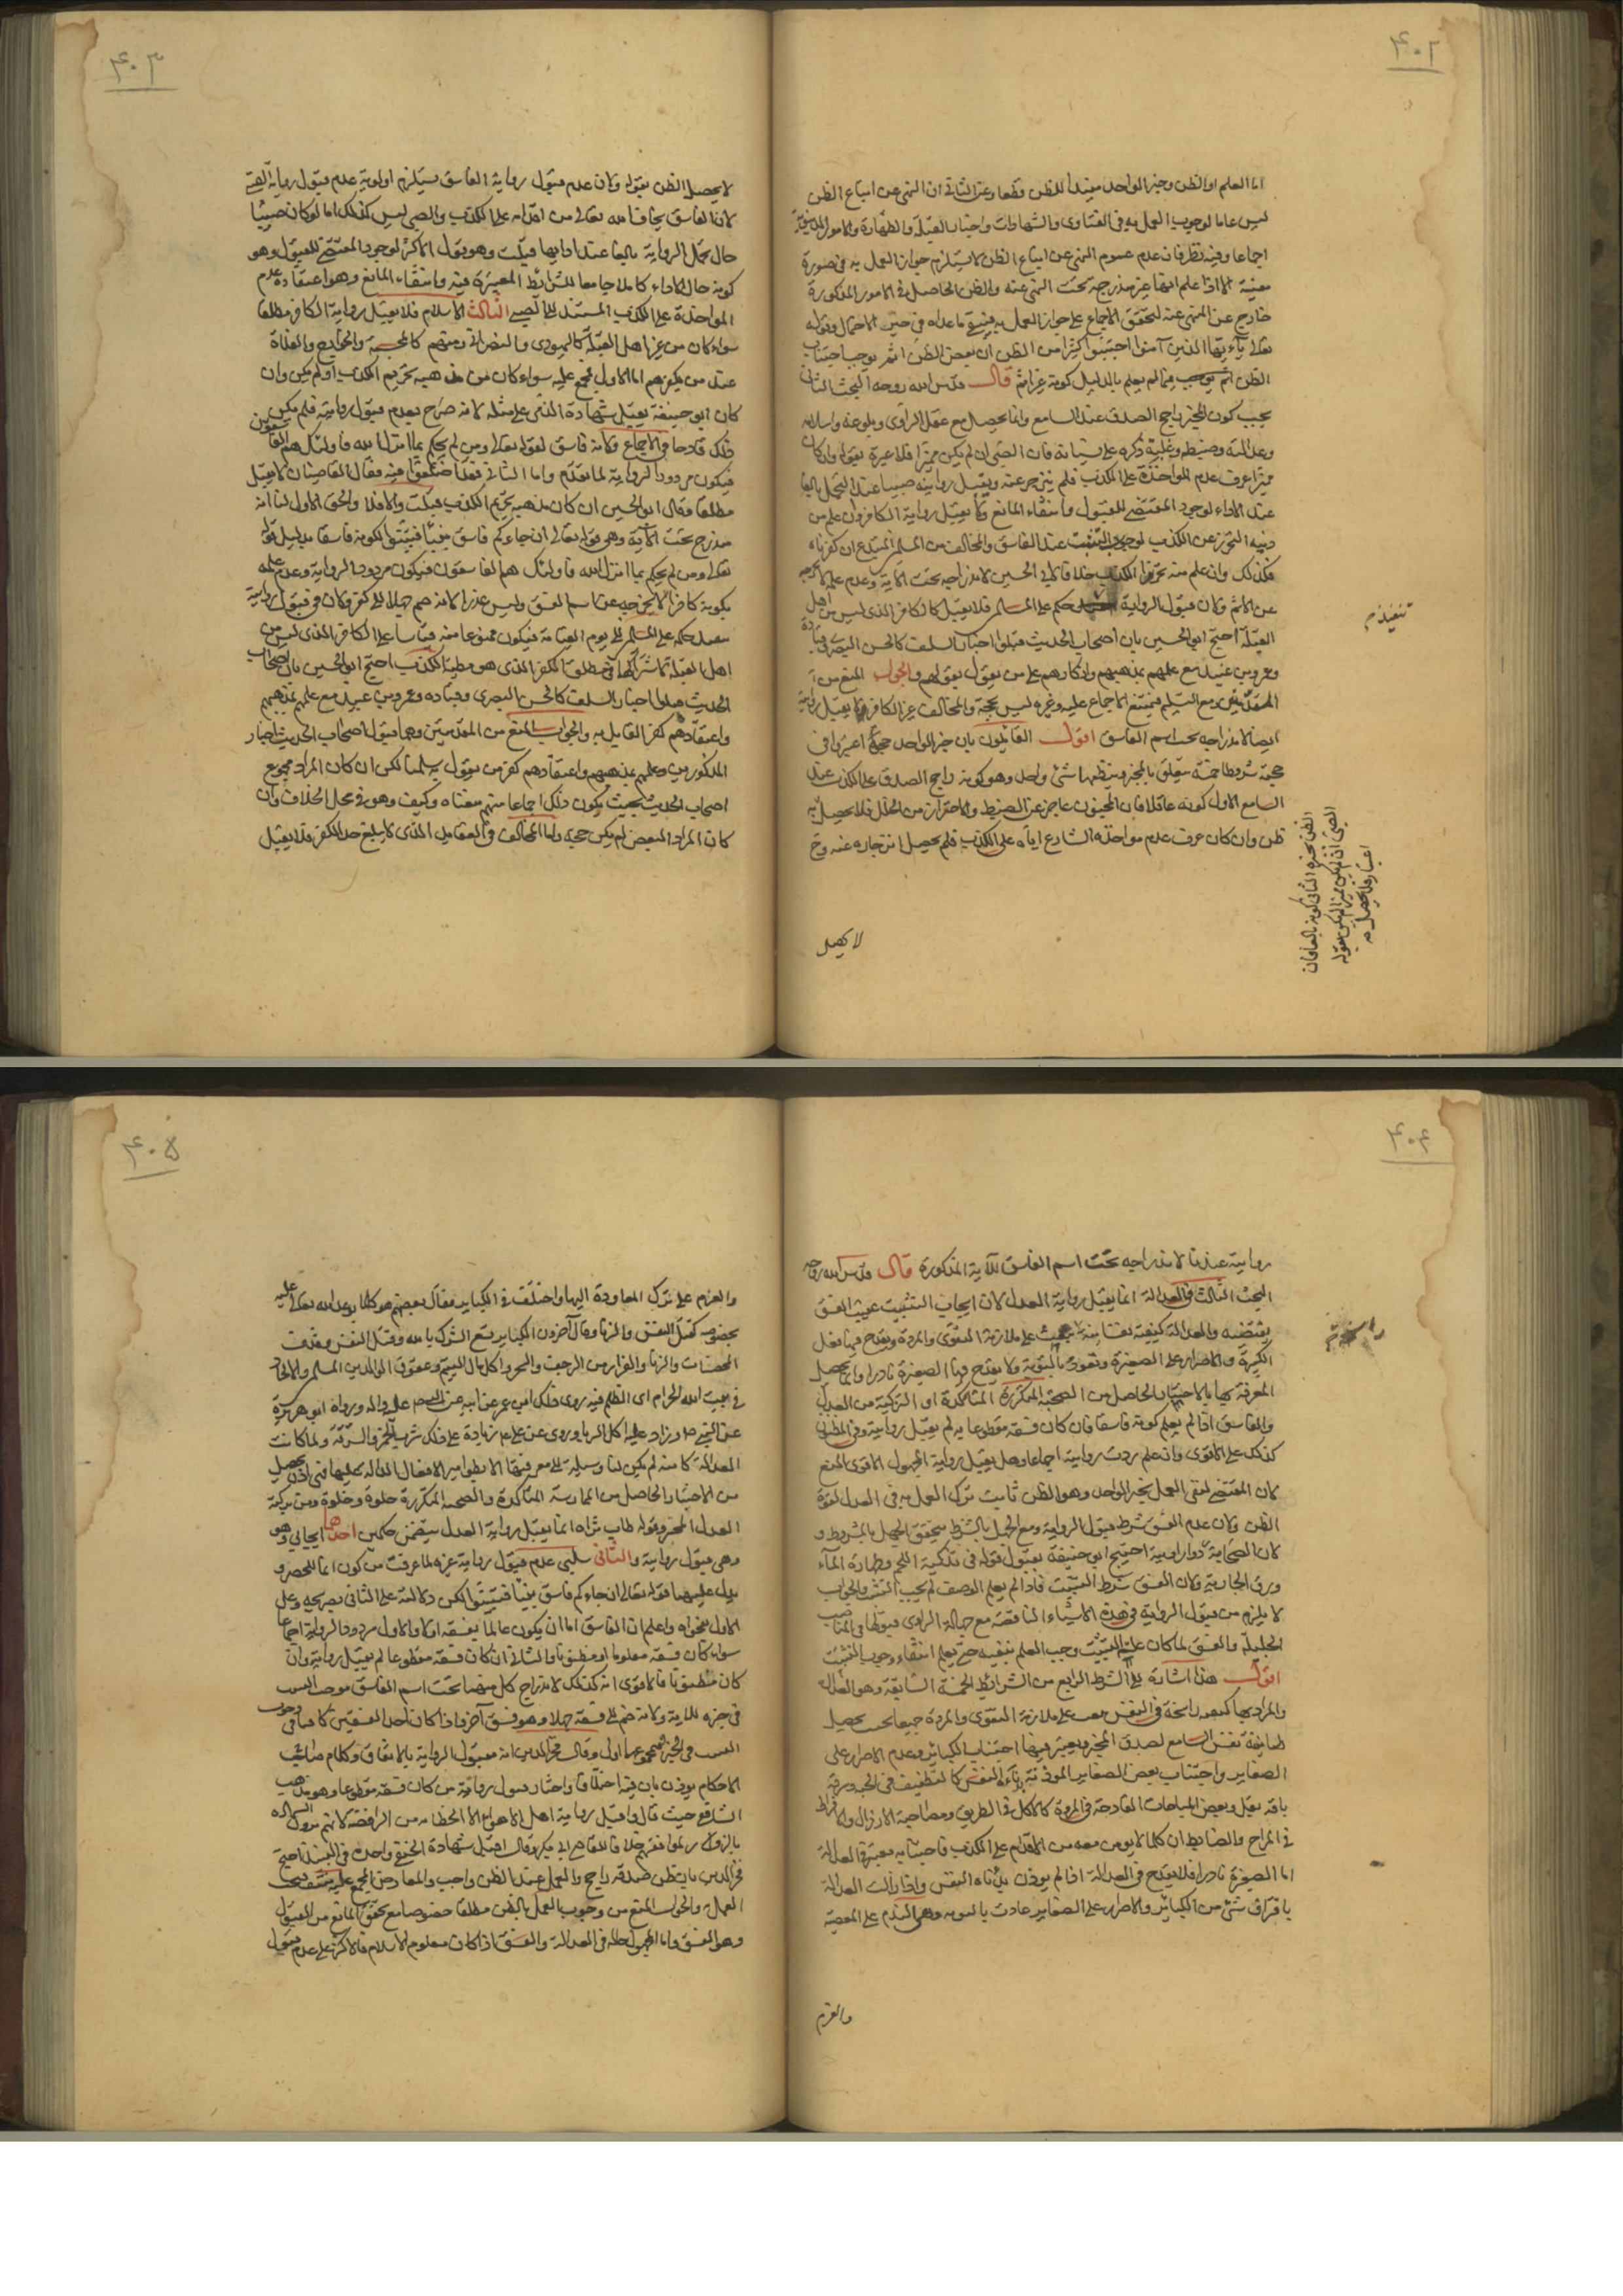 ٤٠٢
اما العلم او الظن وخبر الواحد مفيد للظن قطعا وعن الثاني ان النهي عن اتباع الظن
ليس عاما لوجوب العمل به في الفتاوى والشهادات واخبار القبلة والطهارة والامور الدنيوية
اجماعا وفيه نظر فان عدم عموم النهي عن اتباع الظن لا يستلزم جواز العمل به في صورة
معينة الا اذا علم انها غير مندرجة تحت النهي عنه والظن الحاصل في الامور المذكورة
خارج عن المنهي عنه لتحقق الاجماع على جواز العمل به فيبقى ما عداه في حيز الاحتمال وقوله
تعالى يا ايها الذين آمنوا اجتنبوا كثيرا من الظن ان بعض الظن اثم يوجب اجتناب
الظن فيما لم يعلم بالدليل كونه غير اثم قال قدس الله روحه البحث الثاني
يجب كون المخبر راجح الصدق عند السامع وانما يحصل مع عقل الراوي وبلوغه واسلامه
وعدالته وضبطه وغلبة ذكره على نسيانه فان الصبي ان لم يكن مميزا فلا عبرة بقوله وان كان
مميزا عرف عدم المواخذة على الكذب فلم ينزجر عنه ويقبل روايته صبيا عند التحمل بالغا
عند الاداء لوجود المقتضي للقبول وانتفاء المانع ولا يقبل رواية الكافر وان علم من
دينه التحرز عن الكذب لوجوب التثبت عند الفاسق والمخالف من المسلم المبتدع ان كفرناه
فكذلك وان علم منه تحريم الكذب خلافا لابي الحسين لاندراجه تحت الآية وعدم علمه لا يخرجه
عن الاثم ولان قبول الرواية حكم على المسلم فلا يقبل كالكافر الذي ليس من اهل
القبلة احتج ابو الحسين بان اصحاب الحديث قبلوا اخبار السلف كالحسن البصري وقتادة
وعمرو بن عبيد مع علمهم بمذهبهم وانكارهم على من يقول بقولهم والجواب المنع من
المقدمتين ومع التسليم فيمنع الاجماع عليه وغيره ليس بحجة والمخالف غير الكافر لا يقبل روايته
ايضا لاندراجه تحت اسم الفاسق اقول القائلون بان خبر الواحد حجة اعتبروا في
حجيته شروطا خمسة يتعلق بالمخبر وينظمها شئ واحد وهو كونه راجح الصدق على الكذب عند
السامع الاول كونه عاقلا فان المجنون عاجز عن الضبط والاحتراز من الخلل فلا يحصل به
ظن وان كان عرف عدم مواخذة الشارع اياه على الكذب فلم يحصل انزجاره عنه وح
تنفيذ
الظن بخبره الثاني كونه بالغا فان
الصبي ان لم يكن مميزا لم يكن بقوله
اعتبار فلا يحصل به
لا يحصل
٤٠٣
لا يحصل الظن بقوله ولان عدم قبول رواية الفاسق يستلزم اولوية عدم قبول رواية الصبي
لان الفاسق يخاف الله تعالى من اقدامه على الكذب والصبي ليس كذلك اما لو كان صبيا
حال تحمل الرواية بالغا عند ادائها قبلت وهو قول الاكثر لوجود المقتضي للقبول وهو
كونه حال الاداء كاملا جامعا للشرائط المعتبرة فيه وانتفاء المانع وهو اعتقاده عدم
المواخذة على الكذب المستند الى الصبي الثالث الاسلام فلا يقبل رواية الكافر مطلقا
سواء كان من غير اهل القبلة كاليهودي والنصراني ومنهم كالمجسمة والخوارج والغلاة
عند من يكفرهم اما الاول فمجمع عليه سواء كان من مذهبه تحريم الكذب او لم يكن وان
كان ابو حنيفة يقبل شهادة الذمي على مثله لانه صرح بعدم قبول روايته فلم يكن
ذلك قادحا في الاجماع ولانه فاسق لقوله تعالى ومن لم يحكم بما انزل الله فاولئك هم الفاسقون
فيكون مردود الرواية لما تقدم واما الثاني فقد اختلفوا فيه فقال القاضيان لا يقبل
مطلقا وقال ابو الحسين ان كان مذهبه تحريم الكذب قبلت والا فلا والحق الاول لنا انه
مندرج تحت الآية وهي قوله تعالى ان جاءكم فاسق بنبأ فتبينوا لكونه فاسقا بدليل قوله
تعالى ومن لم يحكم بما انزل الله فاولئك هم الفاسقون فيكون مردود الرواية وعدم علمه
بكونه كافرا لا يخرجه عن اسم الفسق وليس عذرا لانه ضم جهلا الى كفر ولان في قبول روايته
تنفيذ حكمه على المسلم الى يوم القيامة فيكون ممنوعا منه قياسا على الكافر الذي ليس من
اهل القبلة لاشتراكهما في مطلق الكفر الذي هو مظنة الكذب احتج ابو الحسين بان اصحاب
الحديث قبلوا اخبار السلف كالحسن البصري وقتادة وعمرو بن عبيد مع علمهم بمذهبهم
واعتقادهم كفر القايل به والجواب المنع من المقدمتين وهما قبول اصحاب الحديث اخبار
المذكورين وعلمهم بمذهبهم واعتقادهم كفر من يقول به سلمنا لكن ان كان المراد مجموع
اصحاب الحديث بحيث يكون ذلك اجماعا منهم منعناه وكيف وهو في محل الخلاف وان
كان المراد البعض لم يكن حجة واما المخالف في العقايد الذي لا يبلغ حد الكفر فلا يقبل
٤٠٤
روايته عندنا لاندراجه تحت اسم الفاسق للآية المذكورة قال قدس الله روحه
البحث الثالث في العدالة انما يقبل رواية العدل لان ايجاب التثبت عقيب الفسق
يقتضيه والعدالة كيفية نفسانية تبعث على ملازمة التقوى والمروة ويقدح فيها فعل
الكبيرة والاصرار على الصغيرة وتعود بالتوبة ولا يقدح فيها الصغيرة نادرا وانما يحصل
المعرفة بها بالاختبار الحاصل من الصحبة المتكررة المتاكدة او التزكية من العدل
والفاسق اذا لم يعلم كونه فاسقا فان كان فسقه مقطوعا به لم يقبل روايته وفي المظنون
كذلك على الاقوى وان علم ردت روايته اجماعا وهل يقبل رواية المجهول الاقوى المنع
لان المقتضي لنفي العمل بخبر الواحد وهو الظن ثابت ترك العمل به في العدل لقوة
الظن ولان عدم الفسق شرط قبول الرواية ومع الجهل بالشرط يتحقق الجهل بالمشروط و
لان الصحابة ردوا روايته احتج ابو حنيفة بقبول قوله في تذكية اللحم وطهارة الماء
ورق الجارية ولان الفسق شرط التثبت فاذا لم يعلم الوصف لم يجب التثبت والجواب
لا يلزم من قبول الرواية في هذه الاشياء الناقصة مع جهالة الراوي قبولها في المناصب
الجليلة والفسق لما كان علة التثبت وجب العلم بنفيه حتى يعلم انتفاء وجوب التثبت
اقول هذا اشارة الى الشرط الرابع من الشرائط الخمسة السابقة وهو العدالة
والمراد بها كيفية راسخة في النفس تبعث على ملازمة التقوى والمروة جميعا بحيث يحصل
طمانينة نفس السامع لصدق المخبر ويعتبر فيها اجتناب الكبائر وعدم الاصرار على
الصغاير واجتناب بعض الصغاير الموذنة بدناءة النفس كالتطفيف في الحبة وسرقة
باقة بقل وبعض المباحات القادحة في المروة كالاكل في الطريق ومصاحبة الارذال والافراط
في المزاح والضابط ان كلما لا يومن معه من الاقدام على الكذب فاجتنابه معتبر في العدالة
اما الصغيرة نادرا فلا يقدح في العدالة اذا لم يوذن بدناءة النفس واذا زالت العدالة
باقتراف شئ من الكبائر والاصرار على الصغاير عادت بالتوبة وهي الندم على المعصية
راسخة
والعزم
٤٠٥
والعزم على ترك المعاودة اليها واختلف في الكباير فقال بعضهم هو كلما توعد الله تعالى عليه
بخصوصه كقتل النفس والزنا وقال آخرون الكباير تسع الشرك بالله وقتل النفس وقذف
المحصنات والزنا والفرار من الزحف والسحر واكل مال اليتيم وعقوق الوالدين المسلمين والالحاد
في بيت الله الحرام اى الظلم فيه روى ذلك ابن عمر عن ابيه عن النبي صلى الله عليه واله ورواه ابو هريرة
عن النبي ص وزاد عليه اكل الربا وروى عن علي ع زيادة على ذلك شرب الخمر والسرقة ولما كانت
العدالة كامنة لم يكن لنا وسيلة الى معرفتها الا بظواهر الافعال الدالة عليها فهي اذن يحصل
من الاختبار الحاصل من الممارسة المتاكدة والصحبة المتكررة جلوة وخلوة ومن تزكية
العدل المخبر وقوله طاب ثراه انما يقبل رواية العدل يتضمن حكمين احدهما ايجابي وهو
وهي قبول روايته والثاني سلبي عدم قبول رواية غيره لما عرفت من كون انما للحصر و
يدل عليهما قوله تعالى ان جاءكم فاسق بنبأ فتبينوا لكن دلالته على الثاني بصريحه وعلى
الاول بفحواه واعلم ان الفاسق اما ان يكون عالما بفسقه او لا والاول مردود الرواية اجماعا
سواء كان فسقه معلوما او مظنونا والثاني ان كان فسقه مقطوعا لم يقبل روايته وان
كان مظنونا فالاقوى انه كذلك لاندراج كل منهما تحت اسم الفاسق موجب التثبت
في خبره للاية ولانه ضم الى فسقه جهلا وهو فسق آخر فاذا كان احد الفسقين كافيا في وجوب
التثبت في الخبر فمجموعهما اولى وقال فخر الدين انه مقبول الرواية بالاتفاق وكلام صاحب
الاحكام يوذن بان فيه اختلافا واختار قبول رواية من كان فسقه مقطوعا وهو مذهب
الشافعي حيث قال واقبل رواية اهل الاهواء الا الخطابية من الرافضة لانهم يرون الشهادة
بالزور لموافقيهم خلافا للقاضي ابي بكر وقال اقبل شهادة الحنفي واحده في النبيذ احتج
فخر الدين بان ظن صدقه راجح والعمل عند الظن واجب والمعارض المجمع عليه منتف فيجب
العمل والجواب المنع من وجوب العمل بالظن مطلقا خصوصا مع تحقق المانع من القبول
وهو الفسق واما المجهول حاله في العدالة والفسق اذا كان معلوم الاسلام فالاكثر على عدم قبول